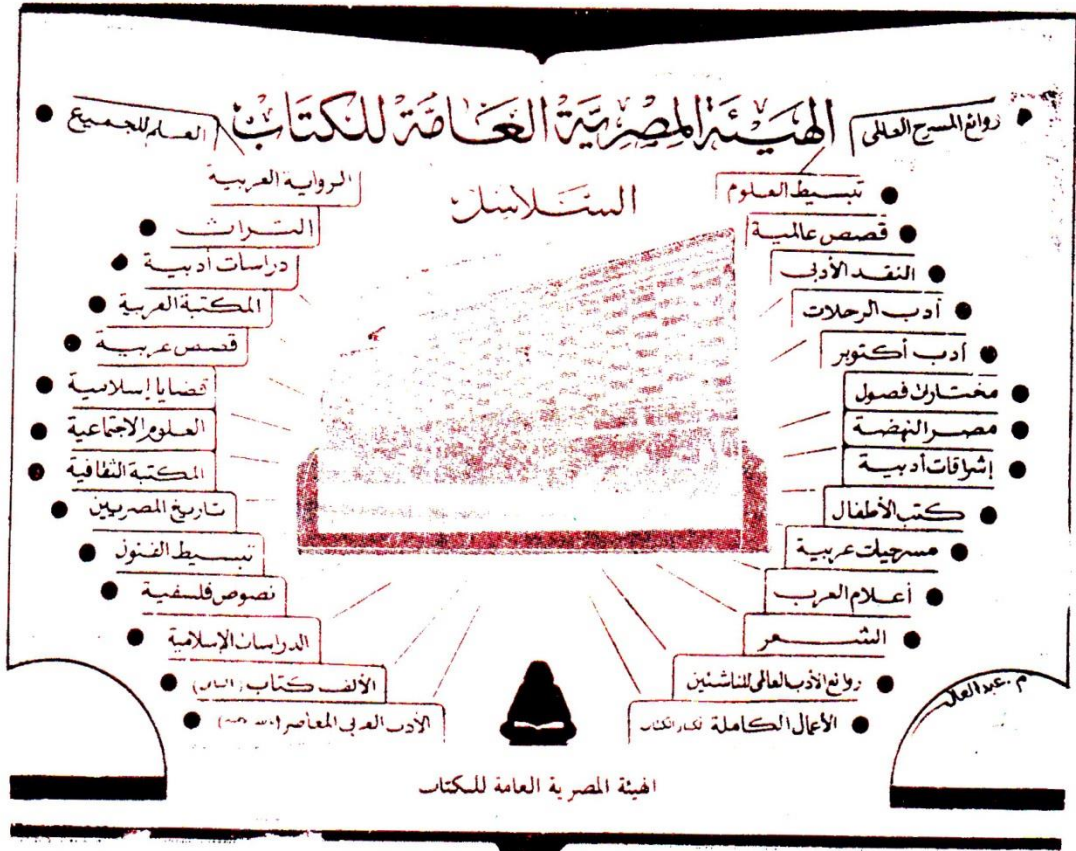 الهيئة المصرية العامة للكتاب
السلاسل
روائع المسرح العالمى
تبسيط العلوم
قصص عالمية
النقد الأدبى
أدب الرحلات
أدب أكتوبر
مختارات فصول
مصر النهضة
إشراقات أدبية
كتب الأطفال
مسرحيات عربية
أعلام العرب
الشعر
روائع الأدب العالمى للناشئين
الأعمال الكاملة لكبار الكتاب
العلم للجميع
الرواية العربية
التراث
دراسات أدبية
المكتبة العربية
قصص عربية
قضايا إسلامية
العلوم الاجتماعية
المكتبة الثقافية
تاريخ المصريين
تبسيط الفنون
نصوص فلسفية
الدراسات الإسلامية
الألف كتاب (الثانى)
الأدب العربى المعاصر
م. عبدالعال
الهيئة المصرية العامة للكتاب